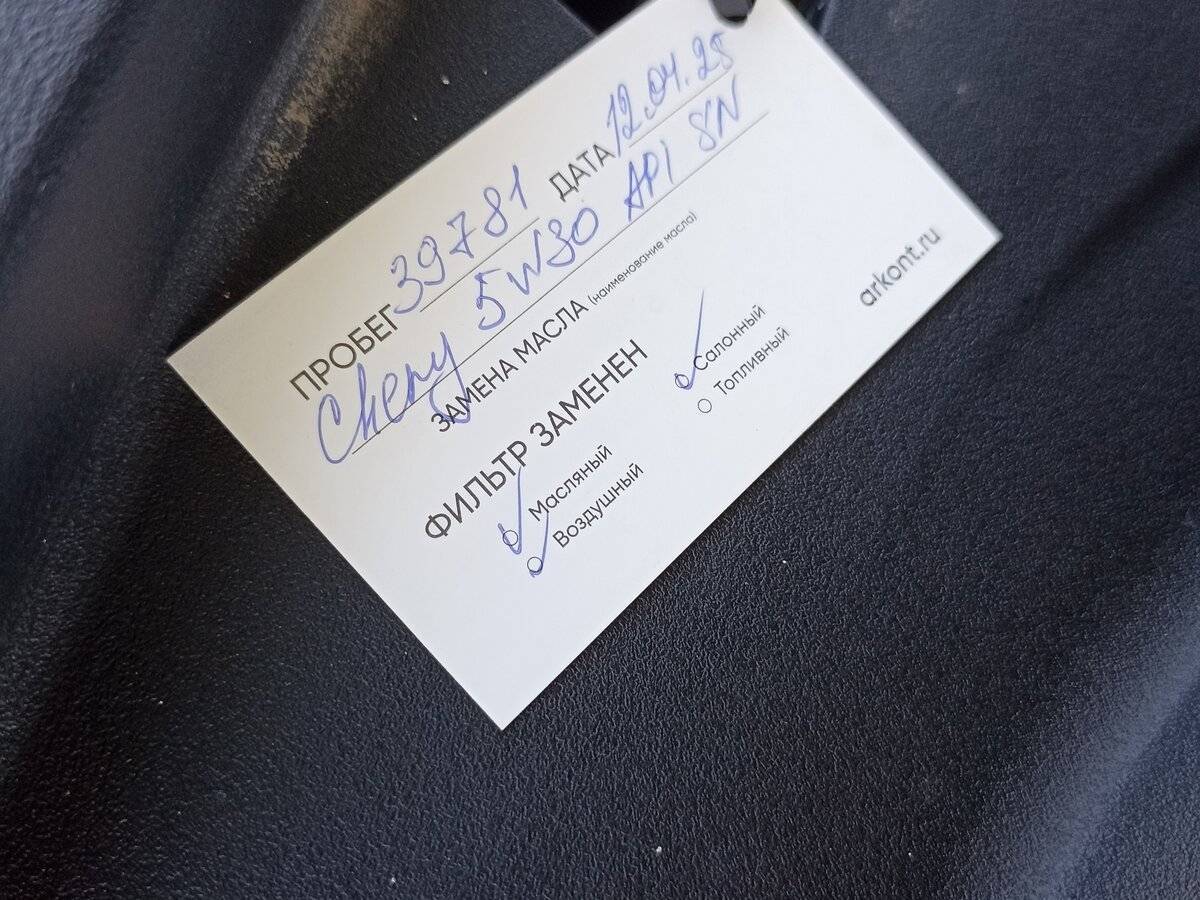 ПРОБЕГ 39781 ДАТА 12.04.25
Chery 5W30 API SN
ЗАМЕНА МАСЛА (наименование масла)
ФИЛЬТР ЗАМЕНЕН
Масляный
Воздушный
Салонный
Топливный
arkont.ru